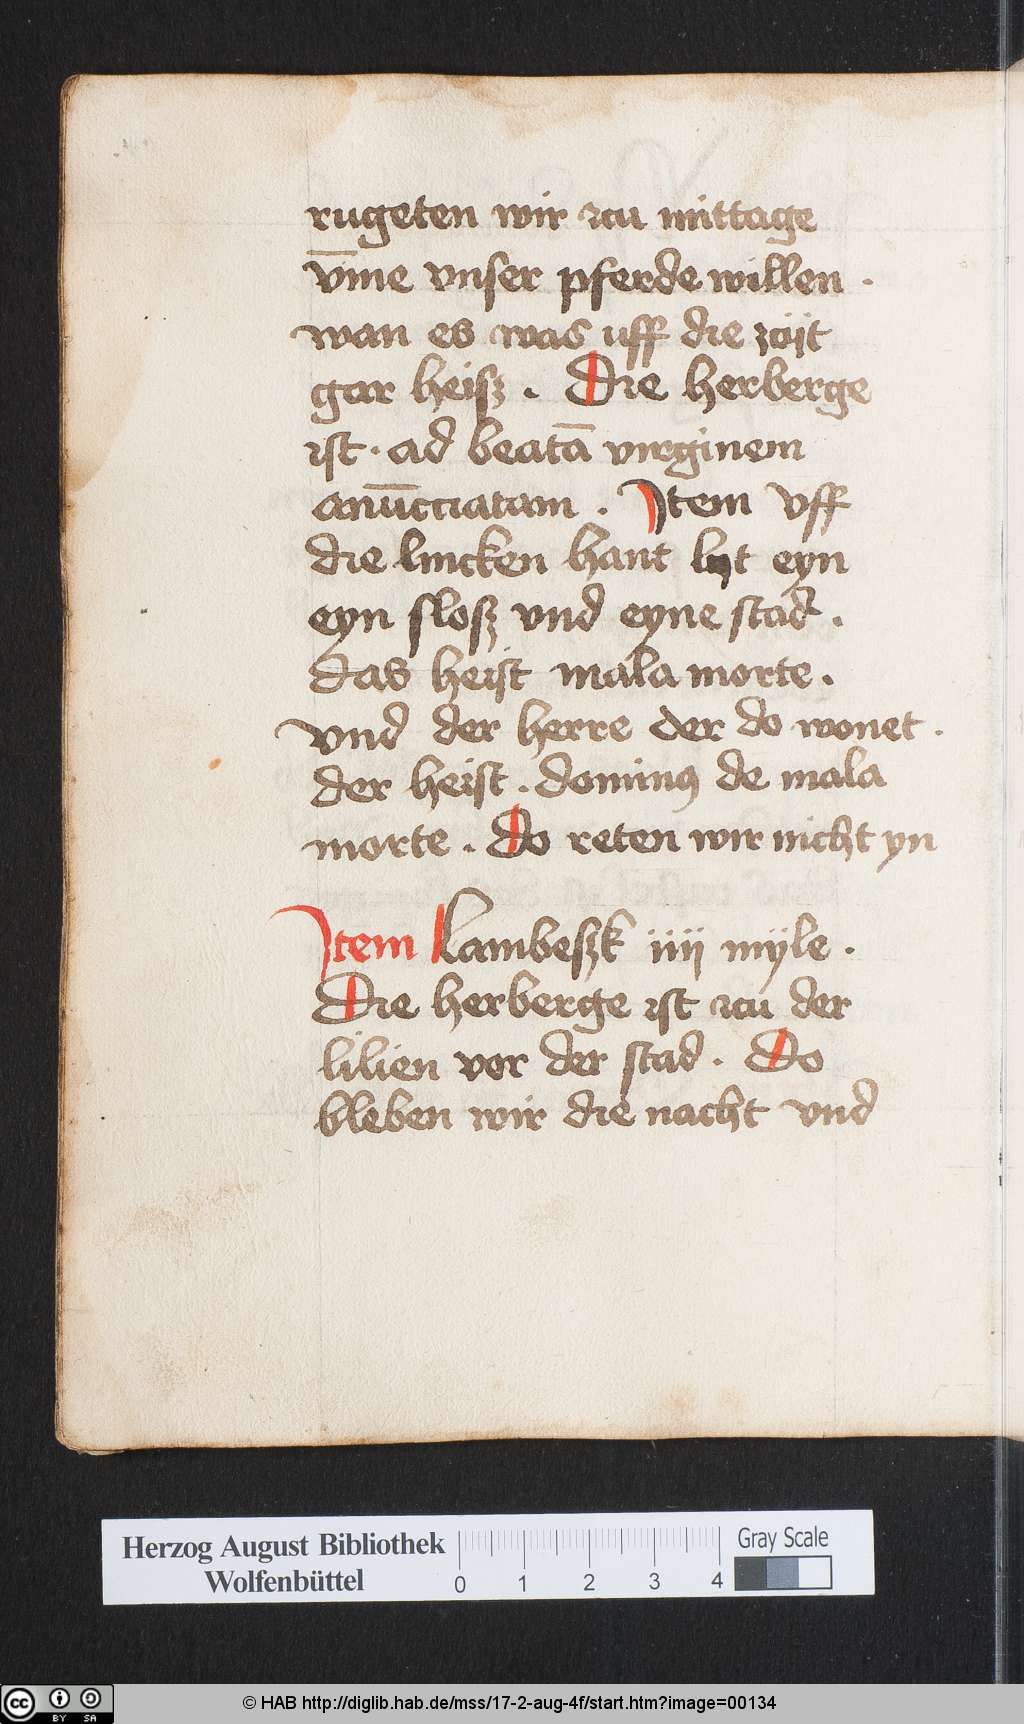 rugeten wir zcu mittage
v̄me vnser pferde willen .
wan es was uff die zcijt
gar heisz . Die herberge
ist . ad beatā virginem
anūcciatam . Item vff
die lincken hant lyt eyn
eyn slosz vnd eyne stad .
das heist mala morte .
vnd der herre der do wonet .
der heist . dominꝰ de mala
morte . Do reten wir nicht yn
Item Lambeszk iiij myle .
Die herberge ist zcu der
lilien vor der stad . Do
bleben wir die nacht vnd
Herzog August Bibliothek
Wolfenbüttel
0 1 2 3 4
Gray Scale
cc BY SA
© HAB http://diglib.hab.de/mss/17-2-aug-4f/start.htm?image=00134